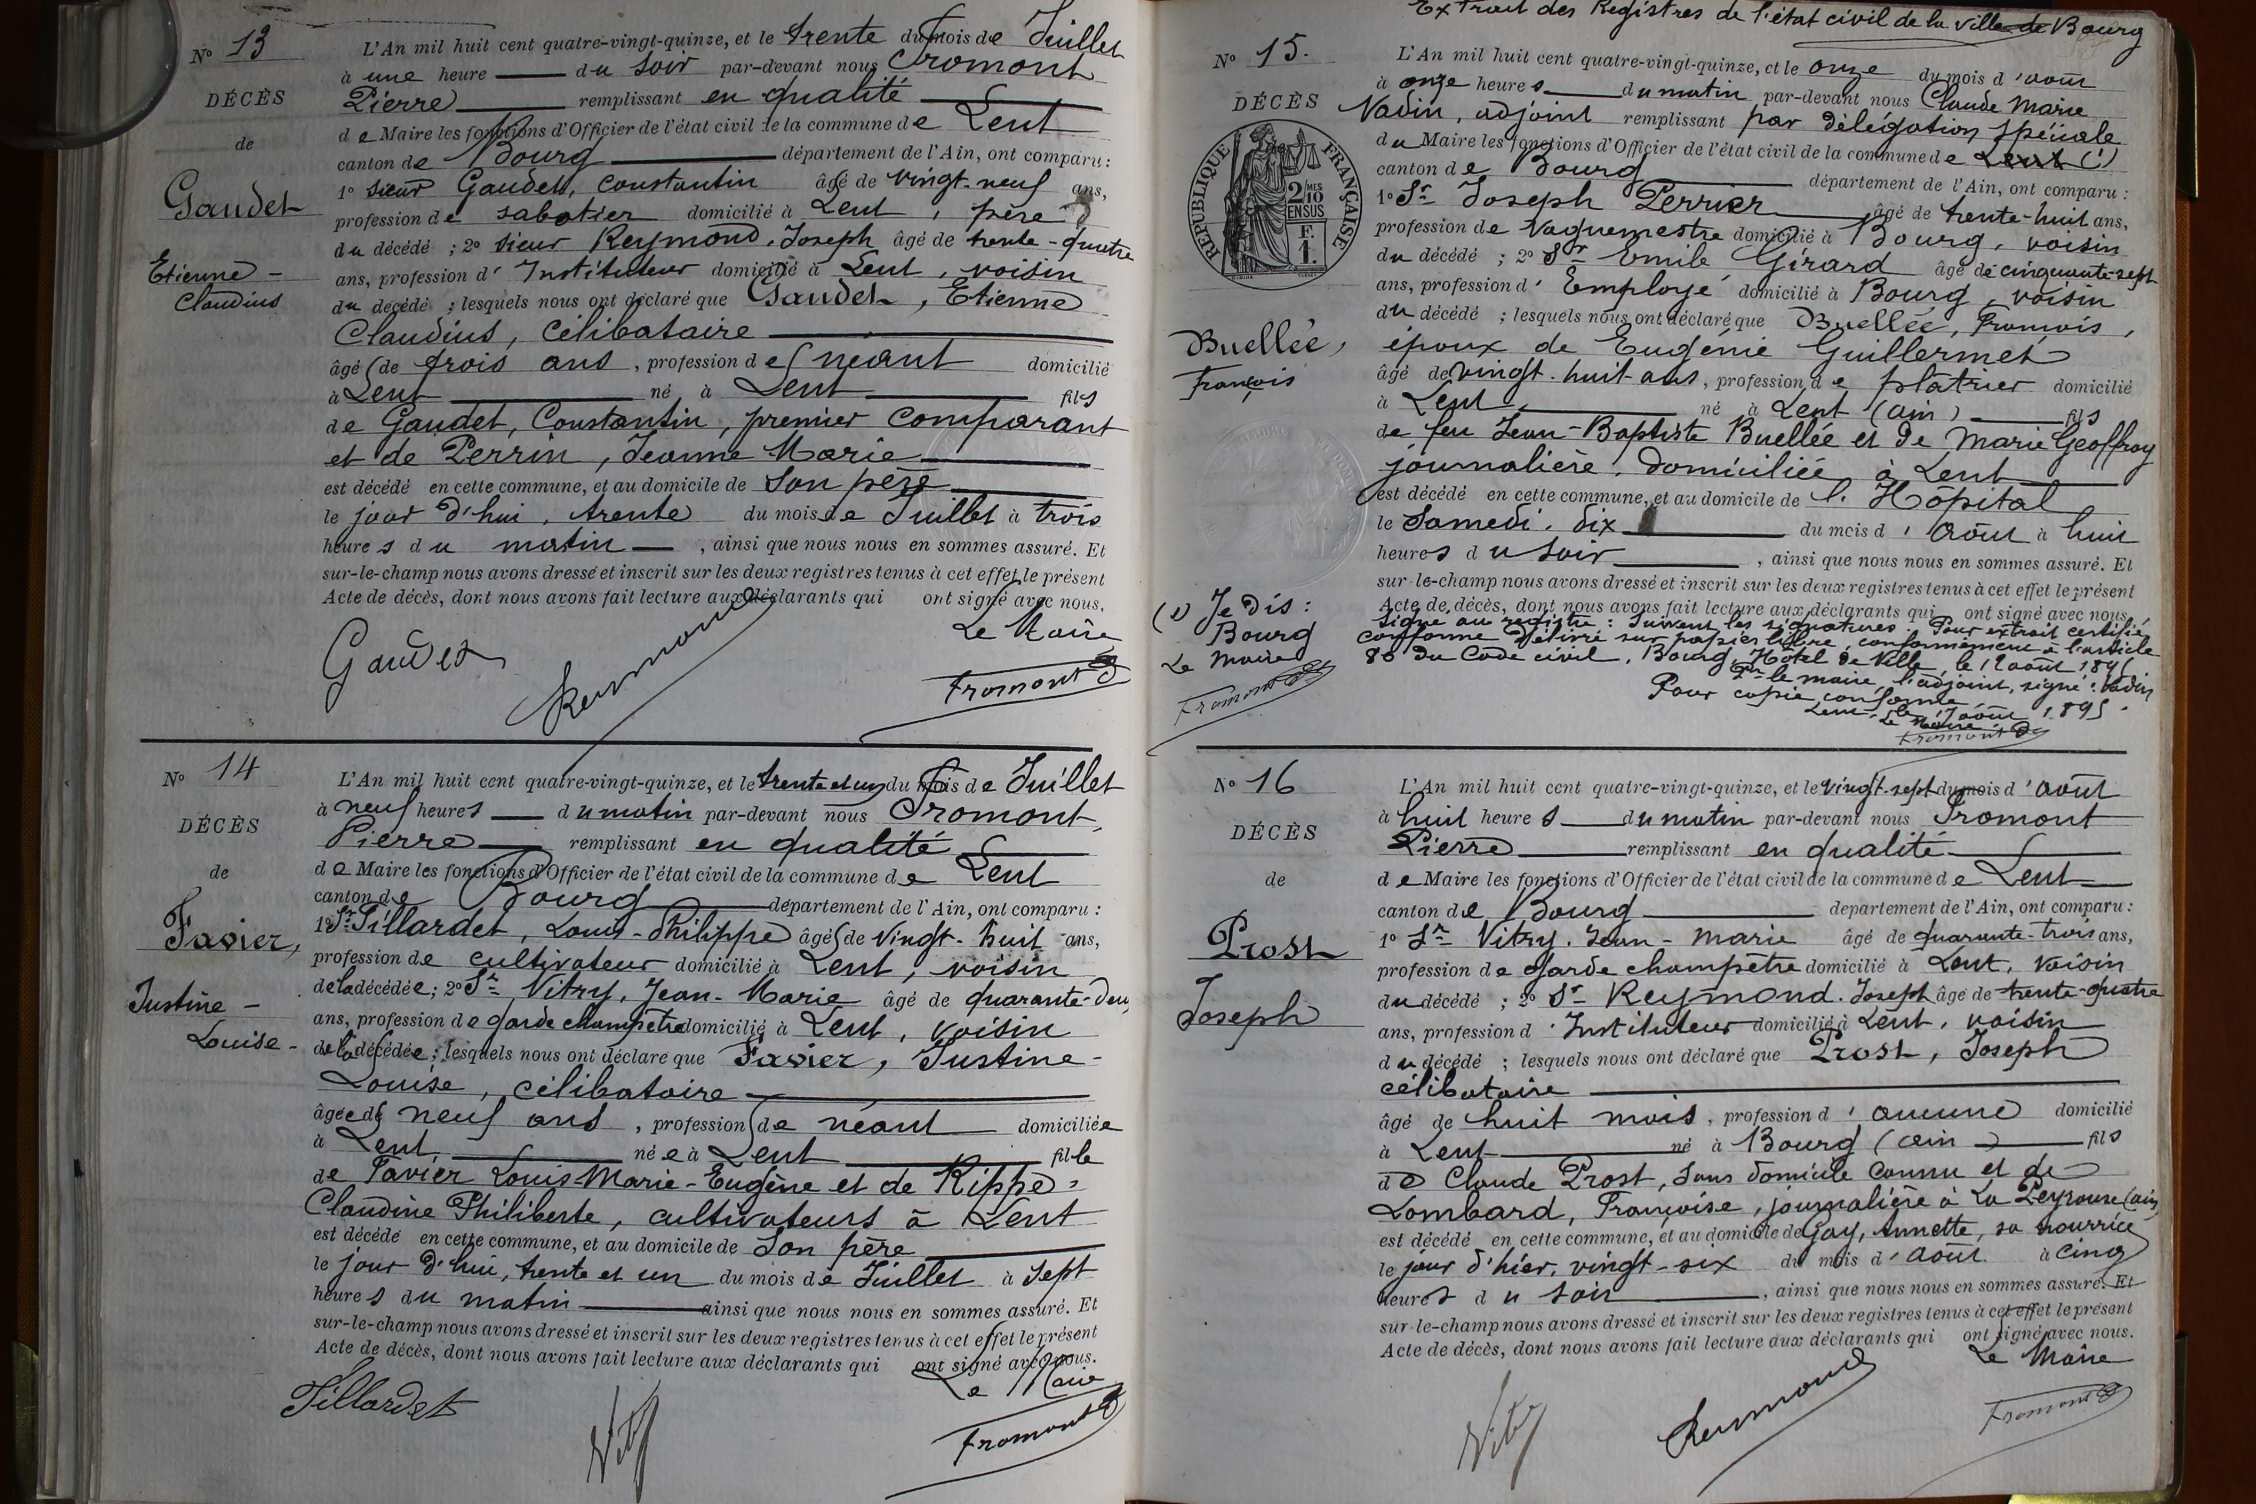 No 13
DÉCÈS
de
Gaudet
Etienne -
Claudius
L'An mil huit cent quatre-vingt-quinze, et le trente du mois de Juillet
à une heure du soir par-devant nous Fromont
Pierre remplissant en qualité
de Maire les fonctions d'Officier de l'état civil de la commune de Lent
canton de Bourg département de l'Ain, ont comparu :
1o sieur Gaudet, Constantin âgé de vingt-neuf ans,
profession de sabotier domicilié à Lent, père
du décédé ; 2o sieur Reymond, Joseph âgé de trente-quatre
ans, profession d' Instituteur domicilié à Lent, voisin
du décédé ; lesquels nous ont déclaré que Gaudet, Etienne
Claudius, célibataire
âgé de trois ans, profession de néant domicilié
à Lent né à Lent fils
de Gaudet, Constantin, premier comparant
et de Perrin, Jeanne Marie
est décédé en cette commune, et au domicile de son père
le jour d'hui, trente du mois de Juillet à trois
heures du matin, ainsi que nous nous en sommes assuré. Et
sur-le-champ nous avons dressé et inscrit sur les deux registres tenus à cet effet le présent
Acte de décès, dont nous avons fait lecture aux déclarants qui ont signé avec nous.
Le Maire
Gaudet Reymond Fromont
No 14
DÉCÈS
de
Favier,
Justine -
Louise -
L'An mil huit cent quatre-vingt-quinze, et le trente et un du mois de Juillet
à neuf heures du matin par-devant nous Fromont,
Pierre remplissant en qualité
de Maire les fonctions d'Officier de l'état civil de la commune de Lent
canton de Bourg département de l'Ain, ont comparu :
1o Sr Tillardet, Louis-Philippe âgé de vingt-huit ans,
profession de cultivateur domicilié à Lent, voisin
de la décédée ; 2o Sr Vitry, Jean-Marie âgé de quarante-deux
ans, profession de garde champêtre domicilié à Lent, voisin
de la décédée ; lesquels nous ont déclaré que Favier, Justine-
Louise, célibataire
âgée de neuf ans, profession de néant domiciliée
à Lent, née à Lent fille
de Favier Louis Marie-Eugène et de Rippe,
Claudine Philiberte, cultivateurs à Lent
est décédé en cette commune, et au domicile de son père
le jour d'hui, trente et un du mois de Juillet à sept
heures du matin ainsi que nous nous en sommes assuré. Et
sur-le-champ nous avons dressé et inscrit sur les deux registres tenus à cet effet le présent
Acte de décès, dont nous avons fait lecture aux déclarants qui ont signé avec nous.
Le Maire
Tillardet Vitry Fromont
Extrait des Registres de l'état civil de la ville de Bourg
No 15.
DÉCÈS
RÉPUBLIQUE FRANÇAISE
2/10 MES
EN SUS
F.
1.
Buellée,
François
(1) Je dis :
Bourg
Le Maire
Fromont
L'An mil huit cent quatre-vingt-quinze, et le onze du mois d'août
à onze heures du matin par-devant nous Claude Marie
Vadin, adjoint remplissant par délégation spéciale
du Maire les fonctions d'Officier de l'état civil de la commune de Lent (1)
canton de Bourg département de l'Ain, ont comparu :
1o Sr Joseph Perrier âgé de trente-huit ans,
profession de Vaguemestre domicilié à Bourg, voisin
du décédé ; 2o Sr Emile Girard âgé de cinquante-sept
ans, profession d' Employé domicilié à Bourg, voisin
du décédé ; lesquels nous ont déclaré que Buellée, François,
époux de Eugénie Guillermet
âgé de vingt-huit ans, profession de plâtrier domicilié
à Lent, né à Lent (ain) fils
de feu Jean-Baptiste Buellée et de Marie Geoffray
journalière, domiciliée à Lent
est décédé en cette commune, et au domicile de l'Hôpital
le Samedi, dix du mois d'août à huit
heures du soir, ainsi que nous nous en sommes assuré. Et
sur-le-champ nous avons dressé et inscrit sur les deux registres tenus à cet effet le présent
Acte de décès, dont nous avons fait lecture aux déclarants qui ont signé avec nous,
Signé au registre : Suivent les signatures. Pour extrait certifié
conforme délivré sur papier libre, conformément à l'article
80 du Code civil, Bourg, Hôtel de Ville, le 12 août 1895
Pr le maire, l'adjoint, signé : Vadin
Pour copie conforme,
Lent, le 17 août 1895.
Le Maire
Fromont
No 16
DÉCÈS
de
Prost
Joseph
L'An mil huit cent quatre-vingt-quinze, et le vingt-sept du mois d'août
à huit heures du matin par-devant nous Fromont
Pierre remplissant en qualité
de Maire les fonctions d'Officier de l'état civil de la commune de Lent
canton de Bourg département de l'Ain, ont comparu :
1o Sr Vitry, Jean-Marie âgé de quarante-trois ans,
profession de garde champêtre domicilié à Lent, voisin
du décédé ; 2o Sr Reymond, Joseph âgé de trente-quatre
ans, profession d' Instituteur domicilié à Lent, voisin
du décédé ; lesquels nous ont déclaré que Prost, Joseph
célibataire
âgé de huit mois, profession d'aucune domicilié
à Lent né à Bourg (ain) fils
de Claude Prost, sans domicile connu et de
Lombard, Françoise, journalière à La Peyrouse (ain)
est décédé en cette commune, et au domicile de Gay, Annette, sa nourrice
le jour d'hier, vingt-six du mois d'août à cinq
heures du soir, ainsi que nous nous en sommes assuré. Et
sur-le-champ nous avons dressé et inscrit sur les deux registres tenus à cet effet le présent
Acte de décès, dont nous avons fait lecture aux déclarants qui ont signé avec nous.
Le Maire
Vitry Reymond Fromont